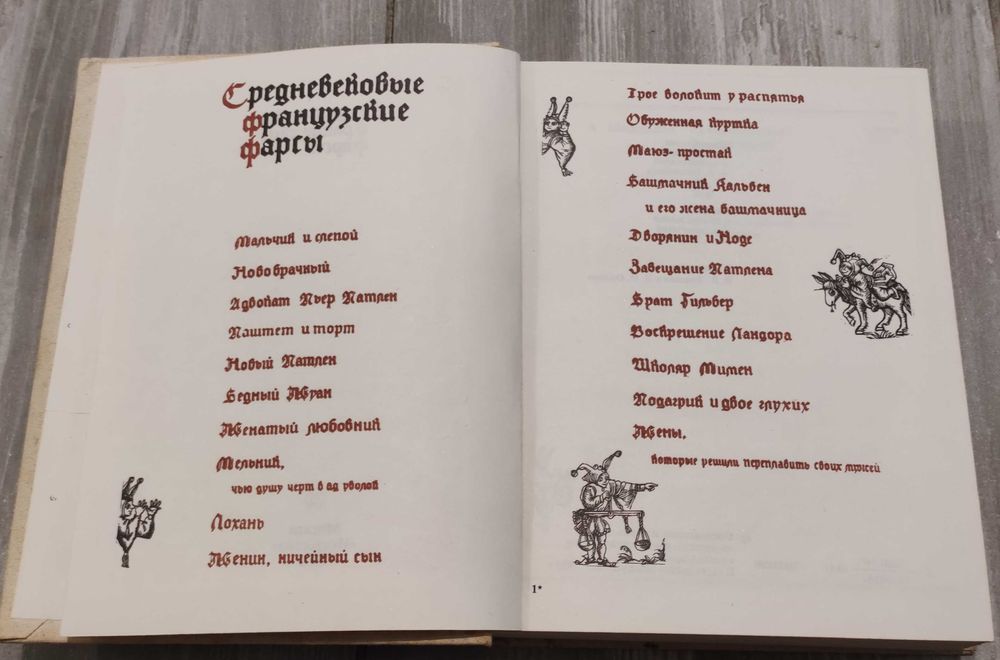 Средневековые
французские
фарсы
Мальчик и слепой
Новобрачный
Адвокат Пьер Патлен
Паштет и торт
Новый Патлен
Бедный Жуан
Женатый любовник
Мельник,
чью душу черт в ад уволок
Лохань
Женин, ничейный сын
Трое волокит у распятья
Обуженная куртка
Маюэ-простак
Башмачник Кальбен
и его жена башмачница
Дворянин и Ноде
Завещание Патлена
Брат Гильбер
Воскрешение Ландора
Школяр Мимен
Подагрик и двое глухих
Жены,
которые решили переплавить своих мужей
1*